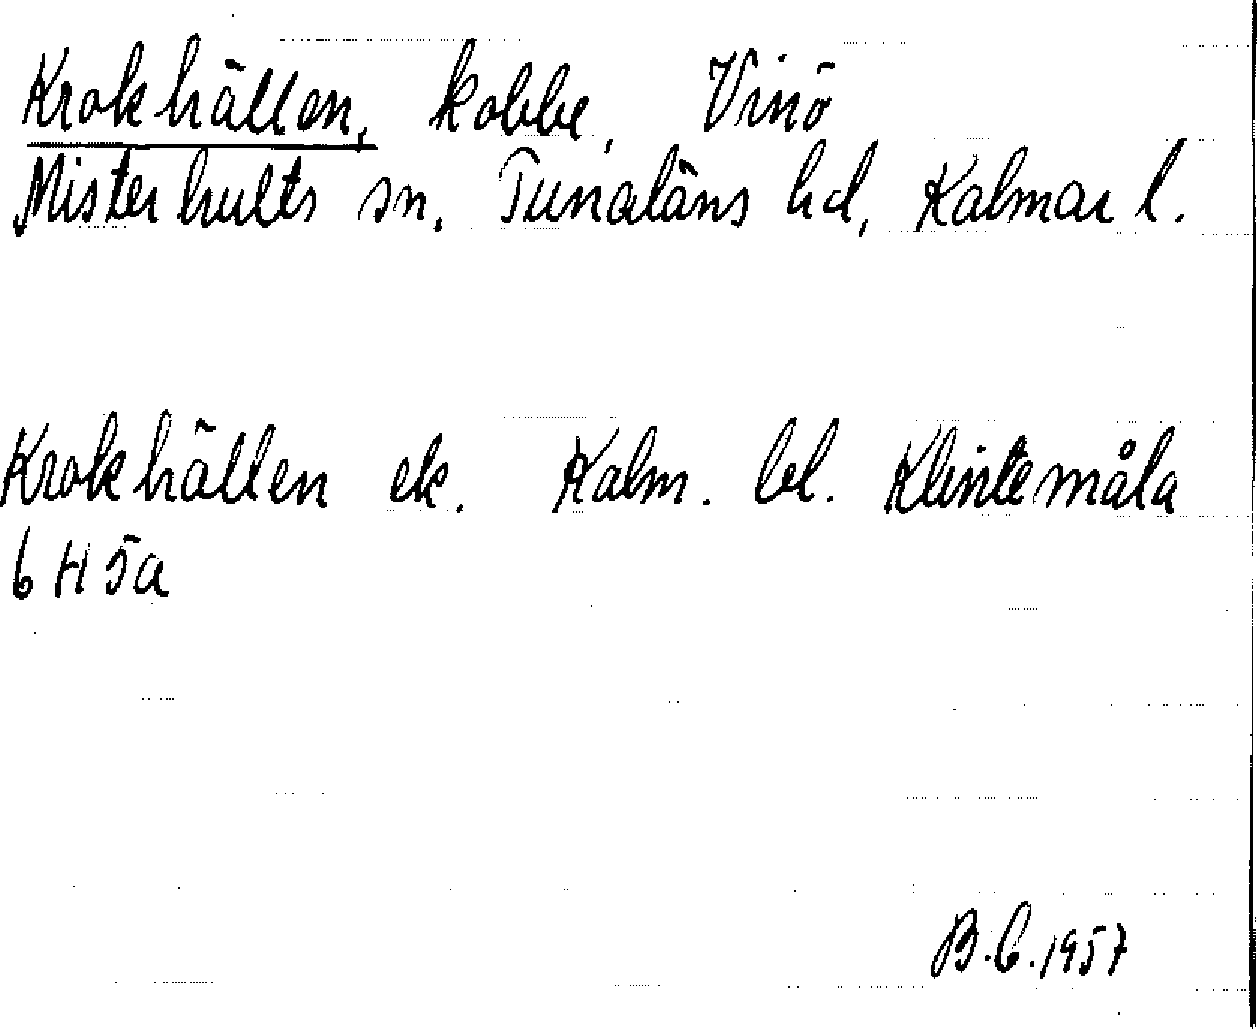 Krokhällen, kobbe, Vinö
Misterhults sn, Tunaläns hd, Kalmar l.
Krokhällen ek. Kalm. bl. Klintemåla
6 H 5a
B.C. 1957